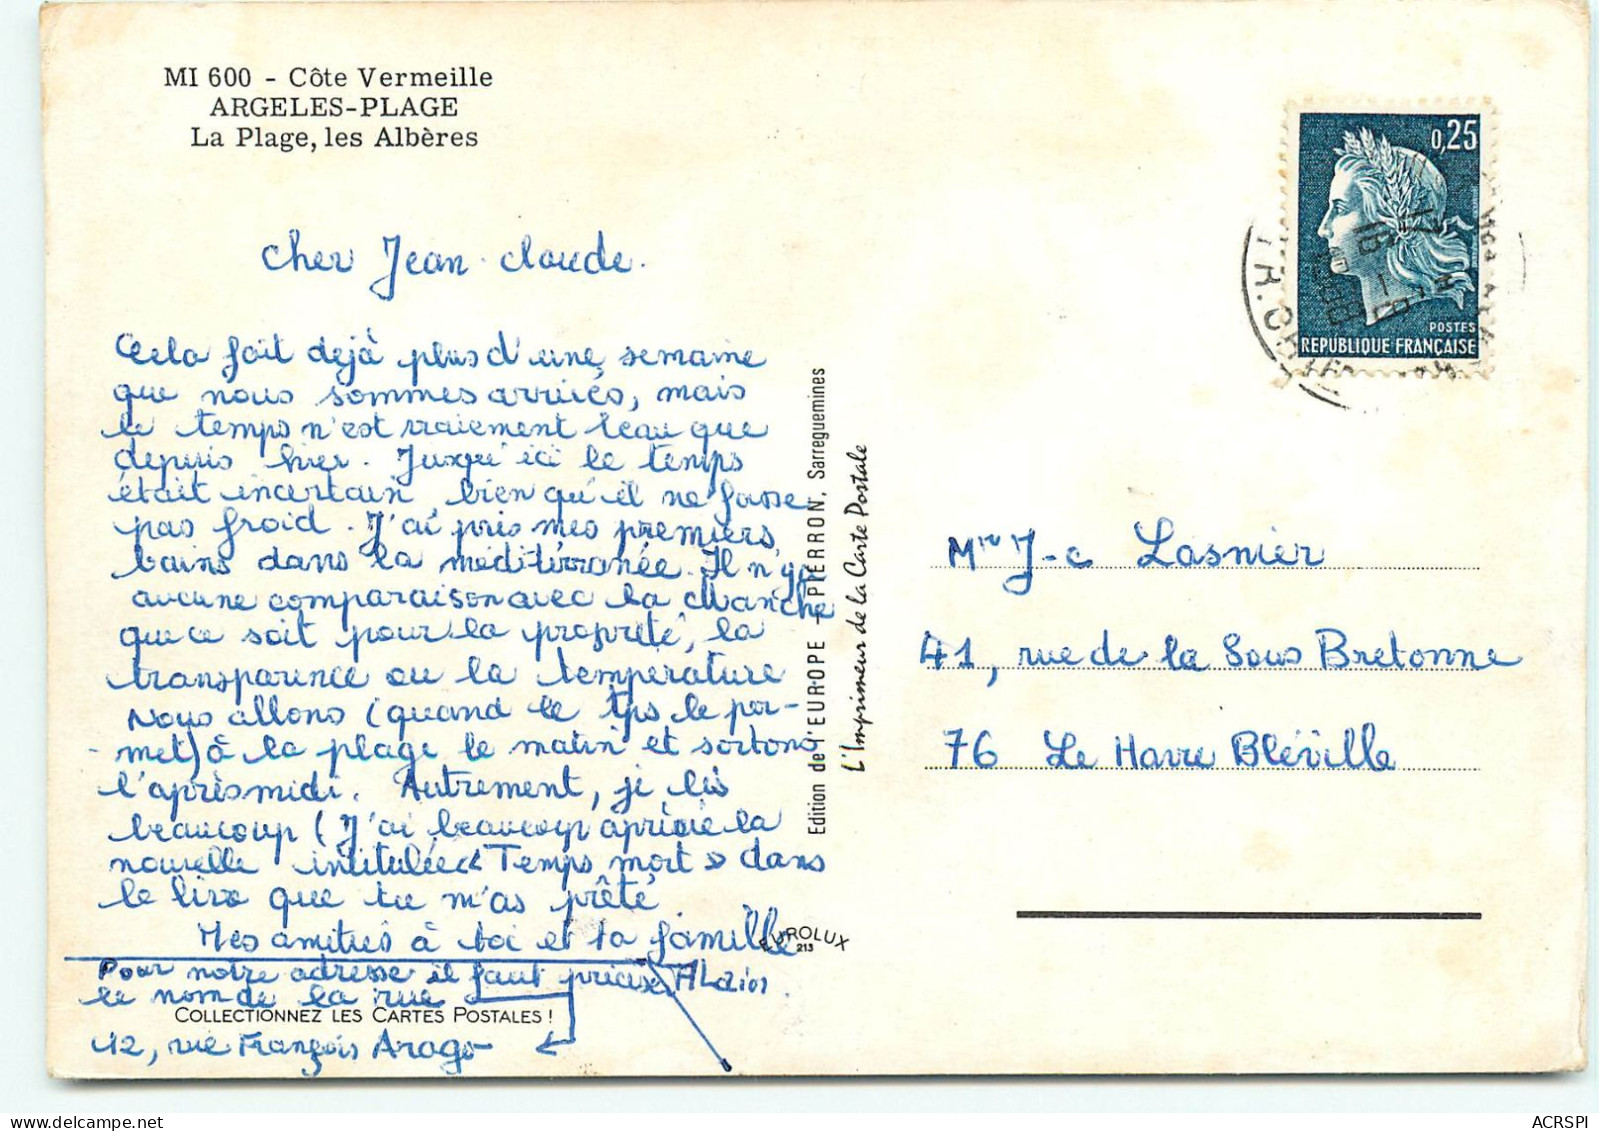 MI 600 - Côte Vermeille
ARGELES-PLAGE
La Plage, les Albères
0,25
POSTES
REPUBLIQUE FRANÇAISE
cher Jean-claude.
Cela fait dejà plus d'une semaine
que nous sommes arrivés, mais
le temps n'est vraiement beau que
depuis hier. Jusqu'ici le temps
était incertain bien qu'il ne fasse
pas froid. J'ai pris mes premiers
bains dans la méditérranée. Il n'y a
aucune comparaison avec la Manche
que ce soit pour la propreté, la
transparence ou la temperature
Nous allons (quand le tps le per-
-met) à la plage le matin et sortons
l'après midi. Autrement, je lis
beaucoup (J'ai beaucoup apricié la
nouvelle intitulée « Temps mort » dans
le livre que tu m'as prêté
Mes amitiés à toi et ta famille
Pour notre adresse il faut préciser Alain.
le nom de la rue
COLLECTIONNEZ LES CARTES POSTALES !
12, rue François Arago
EUROLUX
213
Edition de l'EUROPE - PIERRON, Sarreguemines
L'Imprimeur de la Carte Postale
Mr J-c Lasnier
41, rue de la Sous Bretonne
76 Le Havre Bléville
ACRSPI